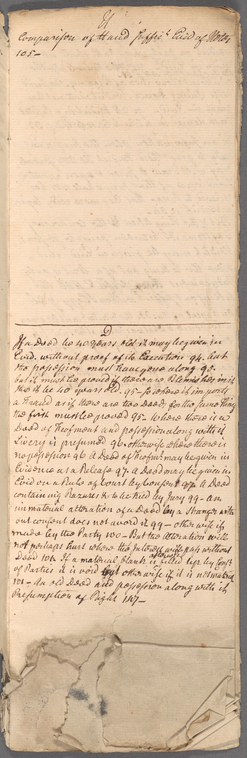 Comparison of Hand suffict. Evid of Notes
105 —
D
If a Deed be 40 years old it may be given in
Evid. without proof of its Execution 94. but
the possession must have gone along 95.
but it must be proved if there are Blemishes in it
tho' it be 40 years old. 95 — So where it imports
a Fraud as if there are two Deeds for the same thing
the first must be proved 95. Where there is a
Deed of Feofment and possession along with it
Livery is presumed 96. otherwise where there is
no possession 96 A Deed of Feofmt may be given in
Evidence as a Release 97. A Deed may be given in
Evid on a Rule of Court by Consent 97. A Deed
containing Razures to be tried by Jury 99 — An
immaterial alteration of a Deed by a Stranger with
out consent does not avoid it 99 — otherwise if
made by the Party 100 — But the alteration will
not perhaps hurt where the Interest will pass without
Deed 101. If a material blank is filled up by Const
afterwards
of Parties it is void but otherwise if it is not material
101 — An old Deed and possession along with it
Presumption of Right 117 —